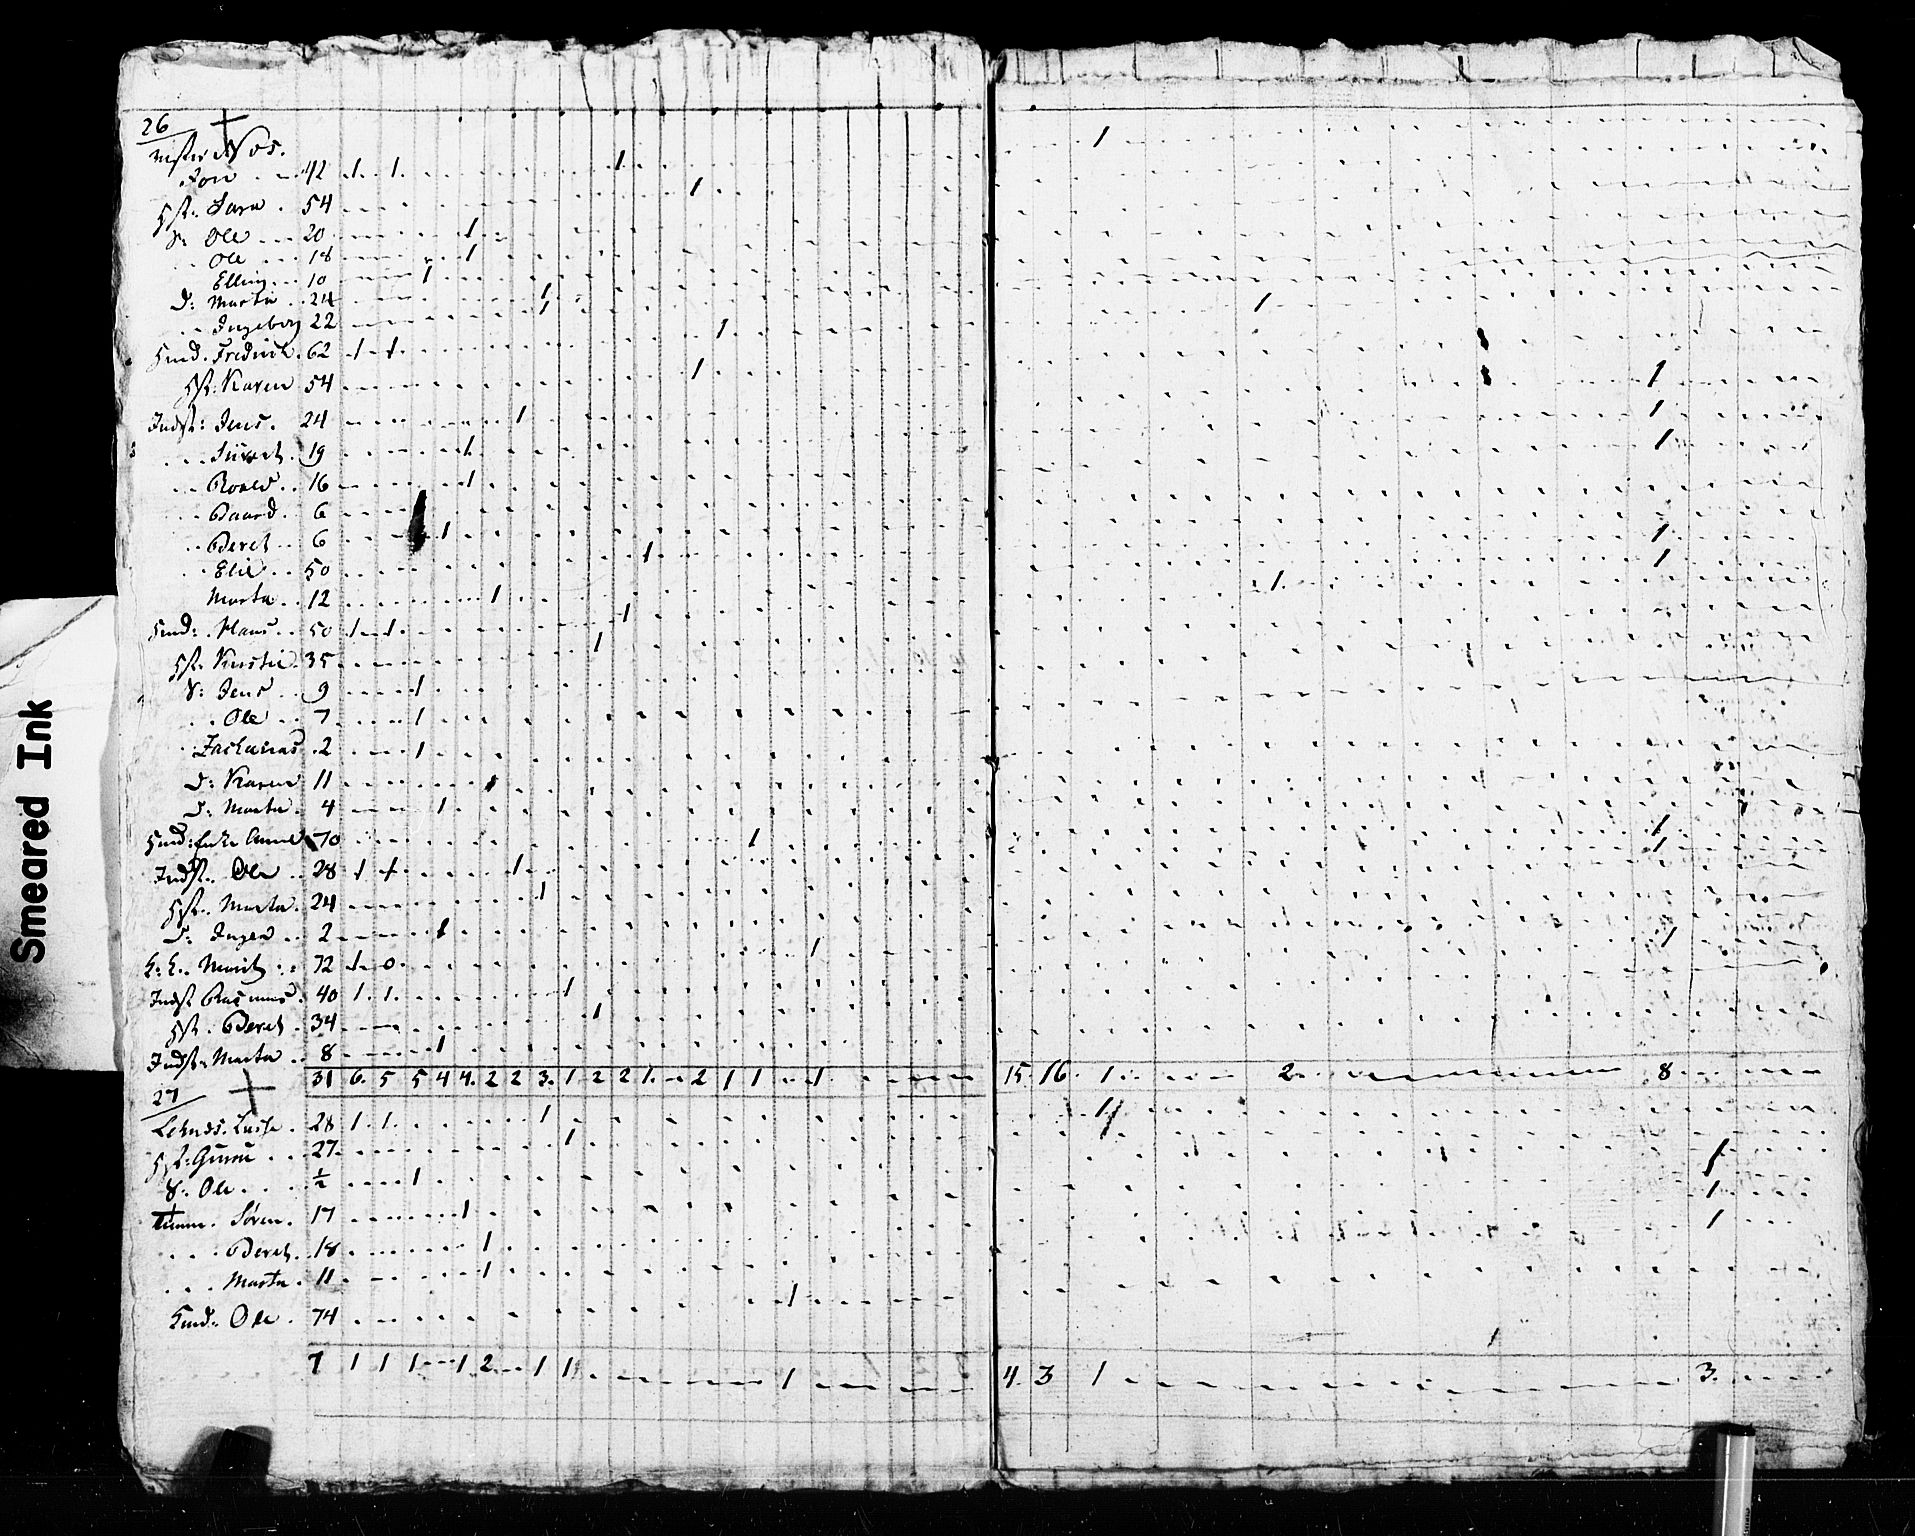 26
Nos.
Jon 42 1 1 1
1
Hst: Sara 54 1
S: Ole 20 1
Ole 18 1
Elling 10 1
D: Marta 24 1
Ingeborg 22 1
Huusd. Fredrich 62 1 1 1 1
Hst: Karen 54 1
Indst: Jens 24 1 1
Siivert 19 1 1
Roald 16 1 1
Baard 6
Beret 6 1 1
Elie 50 1 1
Marta 12 1
Huusd: Hans 50 1 1 1 1
Hst: Kirstie 35 1
S: Jens 9 1
Ole 7 1
Zacharias 2 1
D: Karen 11 1
D: Marta 4 1
Huusd: Enke Anne 70 1 1
Indst. Ole 28 1 1 1 1
Hst. Marta 24 1
D: Inger 2 1
Morits 72 1 0 1 1
Indst Rasmus 40 1 1 1
Hst. Beret 34 1
Indst: Marta 8 1
31 6 5 5 4 4 2 2 3 1 2 2 1 2 1 1 1 15 16 1 2 8
27
Lasse 28 1 1 1 1
Hst: Guruu 27 1
S: Ole ½ 1 1
Søren 17 1 1
Beret 18 1 1
Marta 11 1
Ole 74 1
7 1 1 1 1 2 1 1 1 4 3 1 3
Smeared Ink